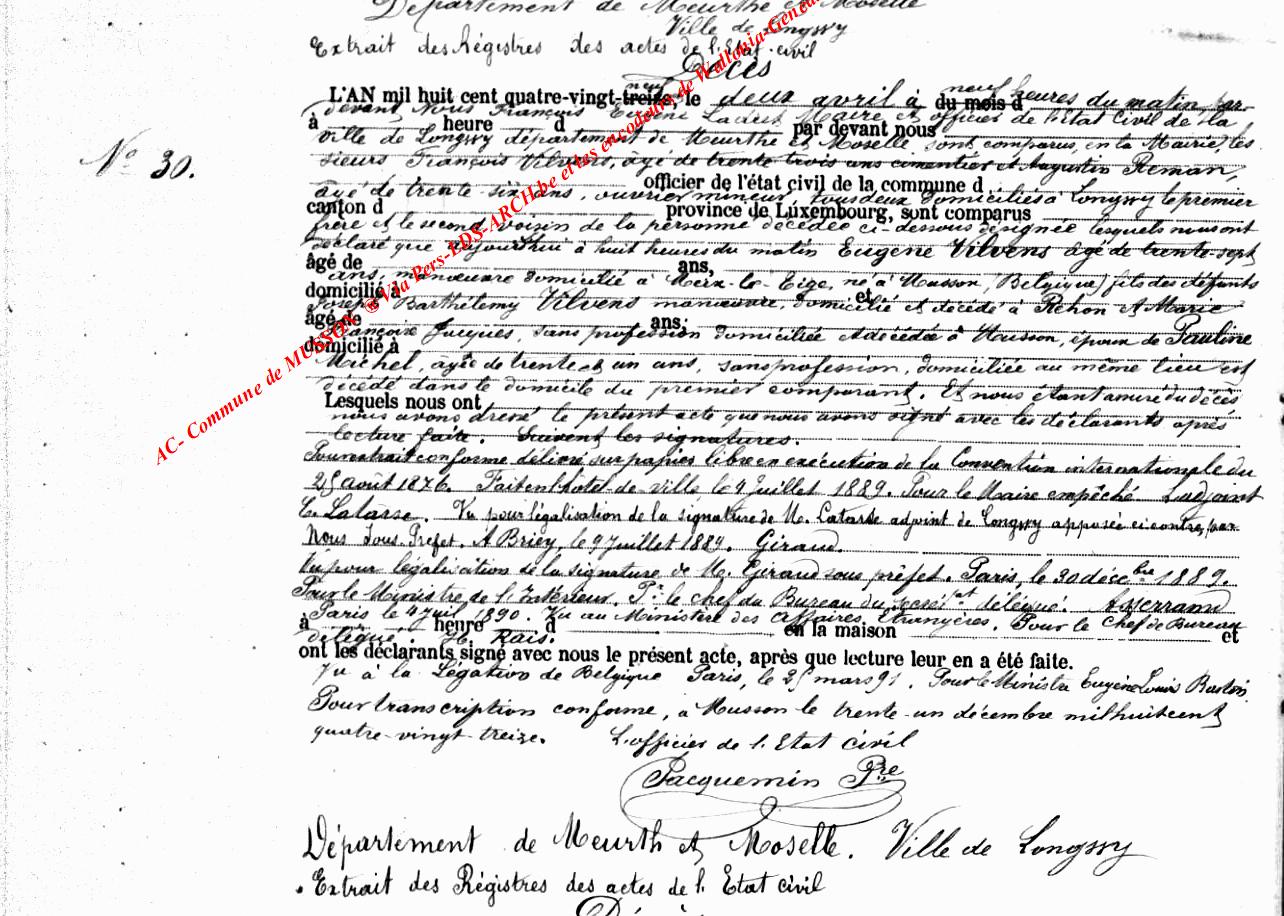 Département de Meurthe et Moselle
Ville de Longwy
Extrait des Régistres des actes de l'Etat civil
Décès
L'AN mil huit cent quatre-vingt-treize, neuf le deux avril à du mois d neuf heures du matin par-
devant Nous François Eugène Maire et officier de l'état Civil de la
à heure d par devant nous
ville de Longwy département de Meurthe et Moselle sont comparus, en la Mairie, les
N° 30.
sieurs François Vilvens, âgé de trente trois ans cimentier et Augustin Reman,
officier de l'état civil de la commune d
âgé de trente-six ans, ouvrier mineur, tous deux domiciliés à Longwy le premier
canton d province de Luxembourg, sont comparus
frère et le second voisin de la personne décédée ci-dessous désignée lesquels nous ont
déclaré que aujourd'hui à huit heures du matin Eugène Vilvens âgé de trente-sept
âgé de ans,
ans, manœuvre domicilié à né à Musson, (Belgique) fils des défunts
domicilié à et
Joseph Barthélemy Vilvens manœuvre, domicilié et décédé à Réhon et Marie
âgé de ans;
Françoise Jacques, sans profession domiciliée & décédée à Musson, époux de Pauline
domicilié à
Michel, agée de trente et un ans, sans profession, domiciliée au même lieu est
décédé dans le domicile du premier comparant. Et nous étant assuré du décès
Lesquels nous ont
nous avons dressé le présent acte que nous avons signé avec les déclarants après
lecture faite. Suivent les signatures.
Pour extrait conforme délivré sur papier libre en exécution de la Convention internationale du
25 août 1876. Fait en l'hôtel-de-ville, le 4 Juillet 1889. Pour le Maire empêché L'adjoint
C. Latasse. Vu pour légalisation de la signature de M. Latasse adjoint de Longwy apposée ci contre, par
Nous Sous Préfet. A Briey, le 9 Juillet 1889. Giraud.
Vu pour légalisation de la signature de M. Giraud sous préfet. Paris, le 30 déc bre 1889.
Pour le Ministre de l'Intérieur. Pr le chef du Bureau du secrét at délégué.
Paris le 4 Juil 1890. Vu au Ministère des Affaires Etrangères. Pour le Chef de Bureau
à heure d en la maison et
délégué. H. Rais.
ont les déclarants signé avec nous le présent acte, après que lecture leur en a été faite.
Vu à la Légation de Belgique Paris, le 25 mars 91. Pour le Ministre Eugène Louis
Pour transcription conforme, à Musson le trente-un décembre mil huit cent
quatre-vingt-treize. L'officier de l'Etat civil
Jacquemin Pre
Département de Meurth et Moselle. Ville de Longwy
Extrait des Régistres des actes de l'Etat civil
AC- Commune de MUSSON ® Via Pers-LDS-ARCH.be et les encodeurs de Wallonia-Geneal